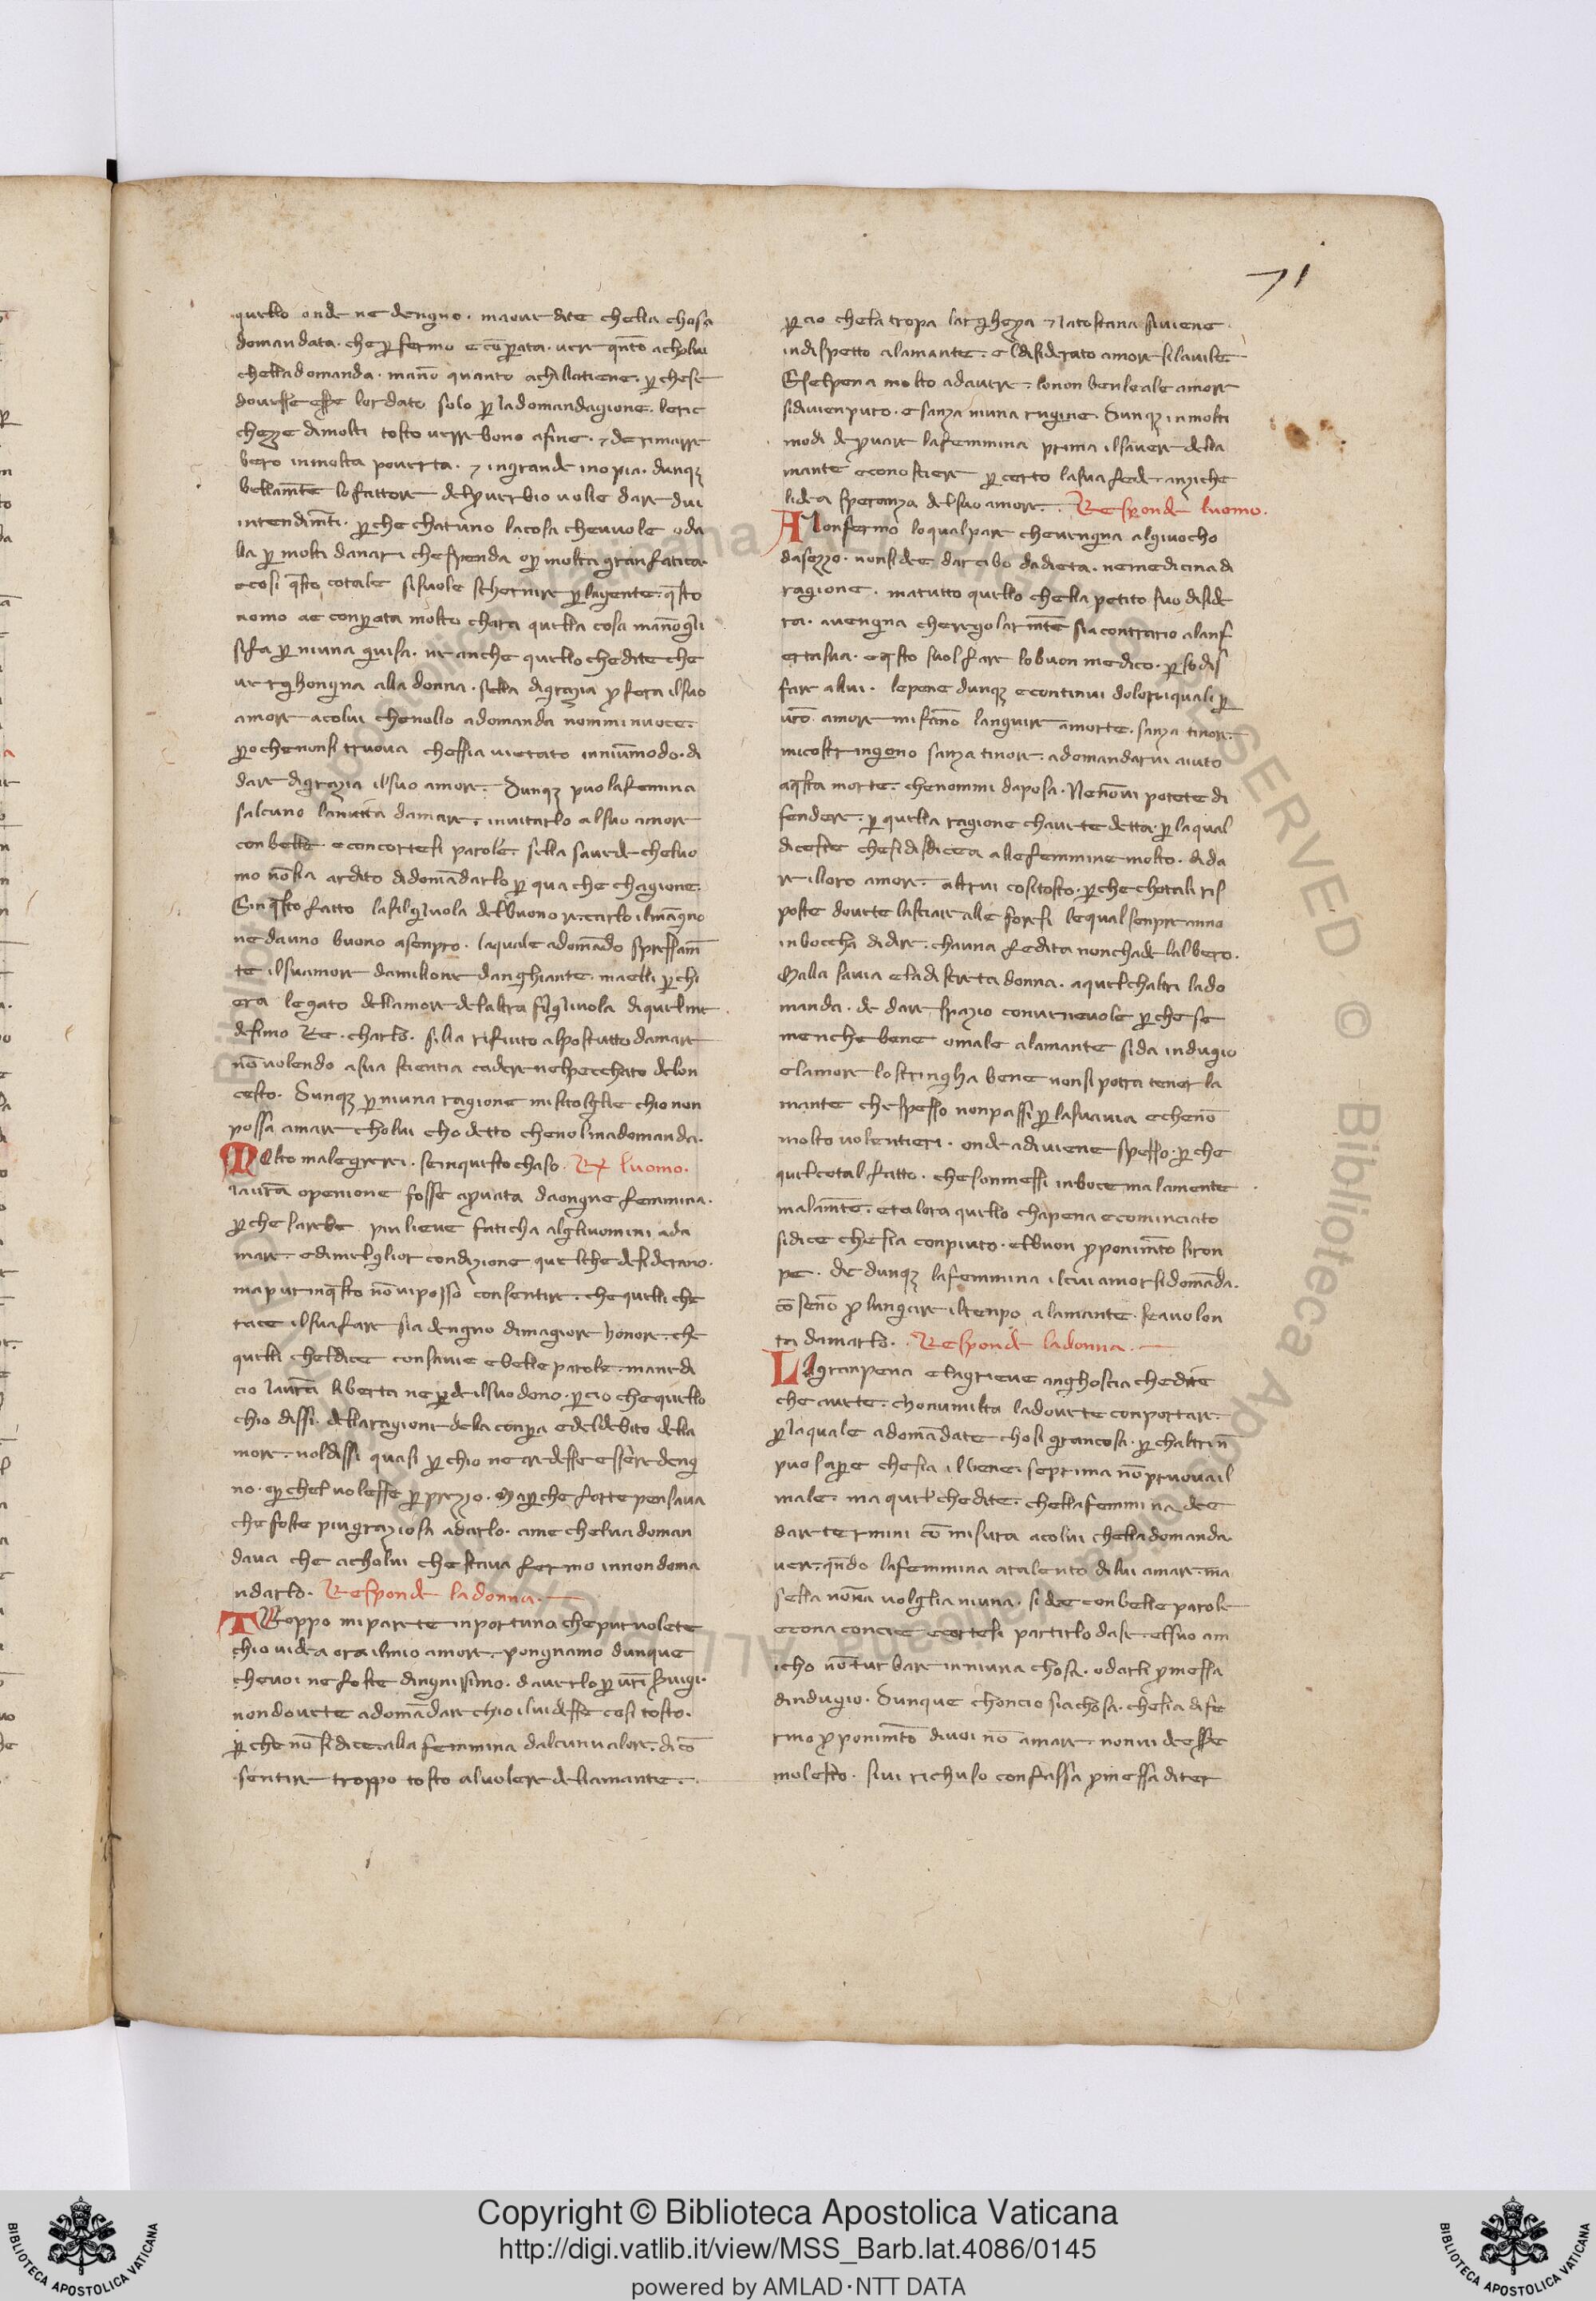 71
quello onde ne dengno. maour dite chella chosa
domandata. che per fermo e cõperata. uer qñto acholui
chella domanda. mañ quanto achi llatiene. perchese
douesse esse lordato solo per la domandagione. leric
cheze dimolti tosto uerrebono afine. ⁊ de rimarre
bero inmolta pouerta. ⁊ ingrande inopia. dunqꝫ
bellamẽte lo fattore delprouerbio uolle dare dui
intendimẽti. per che chatuno lacosa cheuuole oda
lla per molti danari che spenda o per molta granfatica.
ecosi q̃sto cotale sisuole schernire per lagente. q̃sto
uomo ae conperata molto chara quella cosa mañogli
sifa per niuna guisa. ne anche quello chedite che
uerghongna alla donna. sella digrazia profera ilsuo
amore acolui chenollo adomanda nomminuoce.
però chenonsi truoua chessia uietato inniũmodo. di
dare digrazia ilsuo amore. Dunqꝫ puo lafemina
salcuno lauista damare. inuitarlo alsuo amore
con belle. econcortesi parole. sella sauede cheluo
mo nõsia ardito didomãdarlo per qua che chagione.
E in q̃sto fatto lafilgluola delbuono re. carlo ilmãgno
ne dauno buono asenpro. laquale adomãdo spressam̃
te ilsuamore damillone danghiante. maelli perchi
era legato dellamore delaltra figluola diquelme
desimo Re. charlo. silla rifiuto alpostutto damare
nõ uolendo asua scientia cadere nelpecchato delon
cesto. Dunqꝫ per niuna ragione misitolglie chio non
possa amare cholui cho detto chenolmadomanda.
Molto malegreui. seinquesto chaso. Rx luomo.
lauostra openione fosse aprouata daongne femmina.
per che sarebe piu lieue faticha algluomini ada
mare. edimelglior condizione quelche desiderano.
mapur inq̃sto nõ uiposso consentire. chequelli che
tace ilsuafare sia dengno dimagiore honore. che
quelli cheldice consauie ebelle parole. mauedi
cio lauostra liberta ne perde ilsuo dono. per cio chequello
chio dissi. dellaragione dela conpera edeldebito della
more. noldissi quasi per chio ne credesse essere deng
no. o per cheluolesse per prezzo. Ma per che forte pensaua
che foste piugraziosa adarlo. ame cheluadoman
daua che acholui che staua fermo innondoma
ndarlo. Responde ladonna.
TRoppo mi parete inportuno cheppuruolete
chio uidea ora ilmio amore. pongniamo dunque
cheuoi ne foste dingnissimo. dauerlo per uostri seruigi.
nondouete adomãdare chio iluidesse cosi tosto.
per che nõ sidice alla femmina dalcunualore. dicõ
sentire troppo tosto aluolere dellamante.
per cio chela tropa larghezza ⁊ latostana siuiene
indispetto alamante. eldisiderato amore silauile
Eselpena molto adauere. lonon benleale amore
sidiuien puro. esanza niuna rugine. Dunqꝫ inmolti
modi deprouare lafemmina prima ilsauere della
mante econosciere per certo lasuafede. anziche
lidea speranza delsuo amore. Responde luomo.
Alonfermo loqualpare cheuengna algiuocho
dasezzo. nonsidee dar cibo dadieta. nemedicina di
ragione. matutto quello chella petito suo diside
ra. auengna cherregolarmẽte sia contrario alanf
ertasua. eq̃sto suolfare lobuon medico. per sodis
fare allui. lepene dunqꝫ econtinui dolori quali per
uostro amore misãno languire amorte. sanza timore.
micostringono sanza timore. adomandarui aiuto
aq̃sta morte. chenommi daposa. Nenõui potete di
fendere. per quella ragione chauete detta. per laqual
diceste chesidisdicea allefemmine molto. dida
re illoro amore. altrui cositosto. per che chotali ris
poste douete lasciare alle forosi lequal senpre anno
inboccha didire. chauna fedita nonchade lalbero.
Malla sauia eladiscreta donna. aquelchaltri lado
manda. de dare spazio conueneuole per che se
menche bene omale alamante sida indugio
elamore lostringha bene nonsi potra tener la
mante che spesso nonpassi per lasuauia echenõ
molto uolentieri. onde adiuiene spesso. per che
quelcotal fatto. chesonmessi inboce malamente
malamẽte. etalora quello chapena ecominciato
sidice chesia conpiuto. elbuon proponimẽto siron
pe. de dunqꝫ lafemmina ilcui amor sidomãda.
cõ senõ prolungare iltenpo alamante. seauolon
ta damarlo. Responde ladonna.
LAgranpena elagrieue anghoscia chedite
che auete. chonumilta ladouete conportare.
per laquale adomãdate chosi grancosa. per chaltri nõ
puo sapere chesia ilbene. seprima nõpruoua il
male. ma quel chedite. chellafemmina dee
dare termini cõ misura acolui chella domanda.
uero. qñdo lafemmina atalento dilui amare. ma
sella nõna uolglia niuna. sidee conbelle parole
econa concie ecortesi partirlo dase. elsuo am
icho nõturbare inniuna chosa. odarli promessa
dindugio. Dunque chonciò siachosa. chesia dife
rmo proponimẽto diuoi nõ amare. nonui deesse
molesto. siui richuso confalsa promessa diter
Copyright © Biblioteca Apostolica Vaticana
http://digi.vatlib.it/view/MSS_Barb.lat.4086/0145
powered by AMLAD·NTT DATA